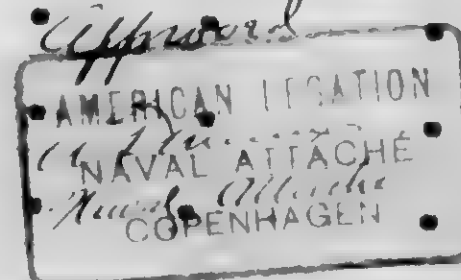 Approved
AMERICAN LEGATION
NAVAL ATTACHÉ
Naval Attache
COPENHAGEN